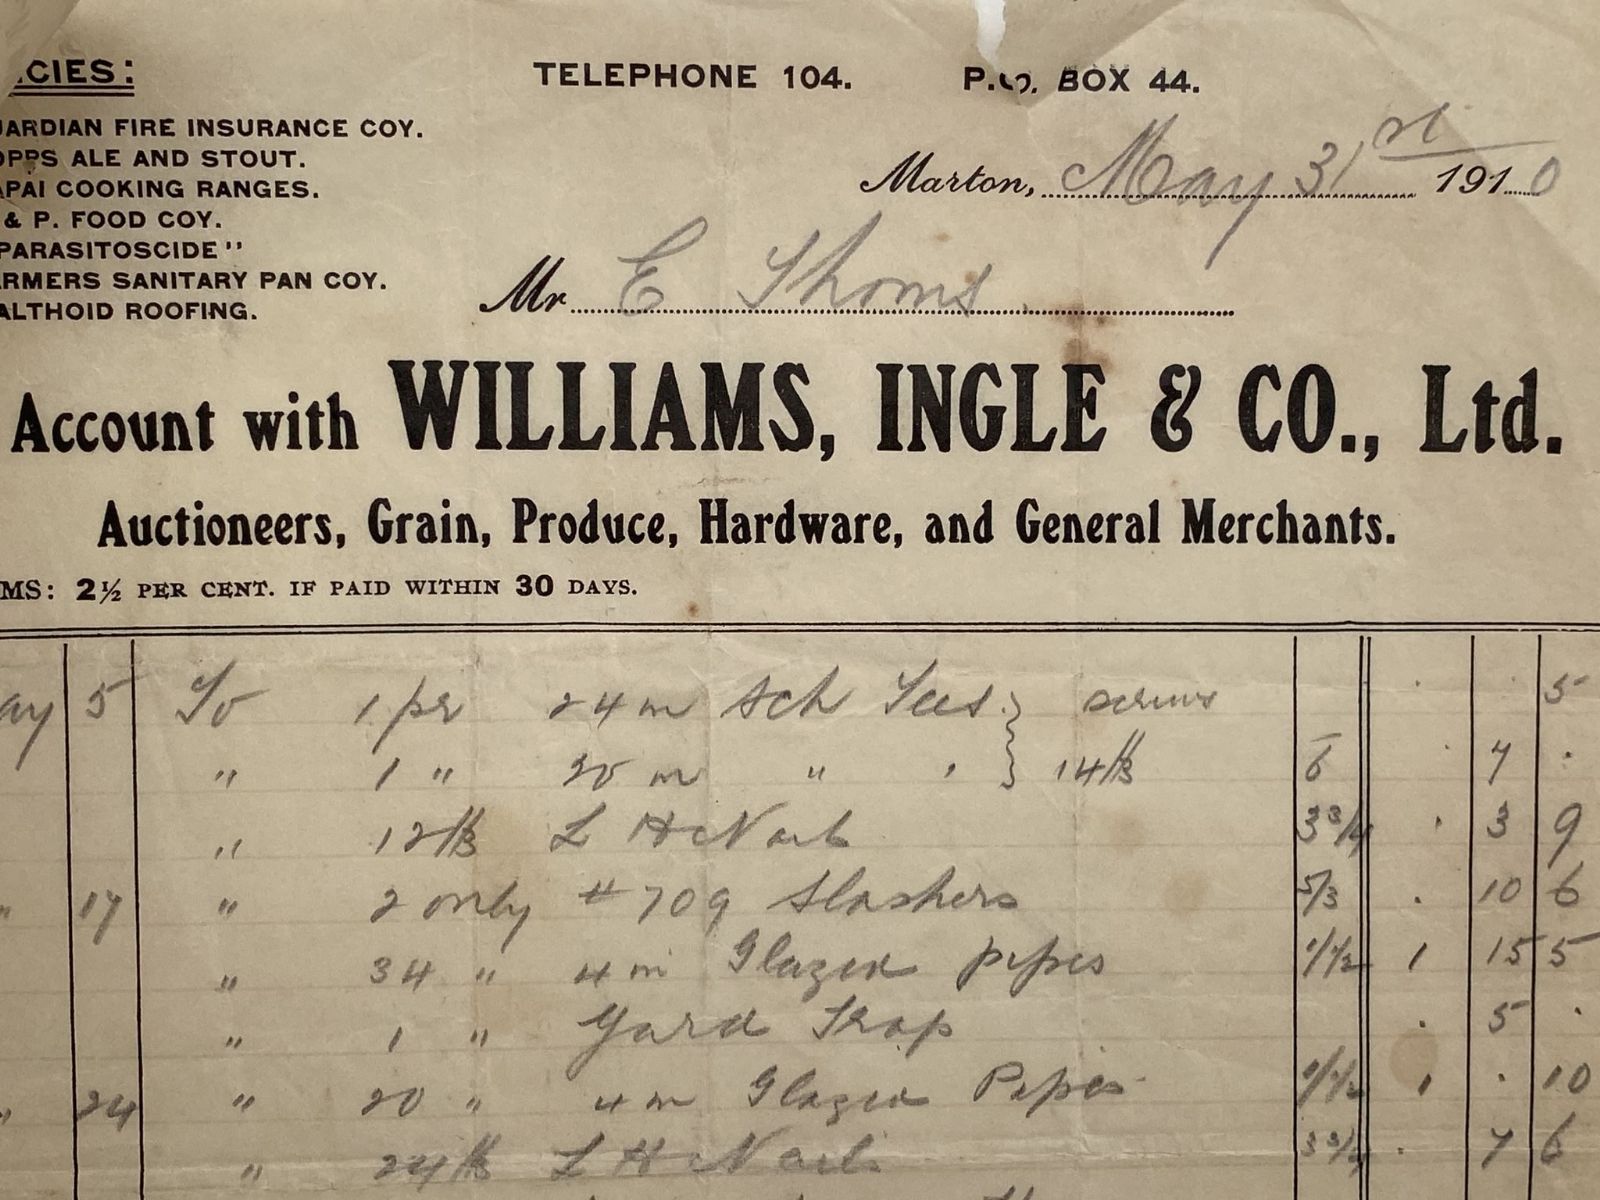 CIES:
TELEPHONE 104. P.O. BOX 44.
ARDIAN FIRE INSURANCE COY.
OPPS ALE AND STOUT.
APAI COOKING RANGES.
& P. FOOD COY.
PARASITOSCIDE"
ARMERS SANITARY PAN COY.
ALTHOID ROOFING.
Marton, May 31st 1910
Mr E Thoms
Account with WILLIAMS, INGLE & CO., Ltd.
Auctioneers, Grain, Produce, Hardware, and General Merchants.
MS: 2½ PER CENT. IF PAID WITHIN 30 DAYS.
ay 5 To 1 pr 24 in Sch Tees screws 5
" 1 " 20 in " 14 lb 6 7 .
" 12 lb L H Nails 3 3/4 . 3 9
" 17 " 2 only # 709 Slashers 5/3 . 10 6
" 34 " 4 in Glazed pipes 1/½ 1 15 5
" 1 " Yard Trap . 5 .
" 24 " 20 " 4 in Glazed Pipes 1/½ 1 . 10
" 24 lb L H Nails 3 3/4 . 7 6